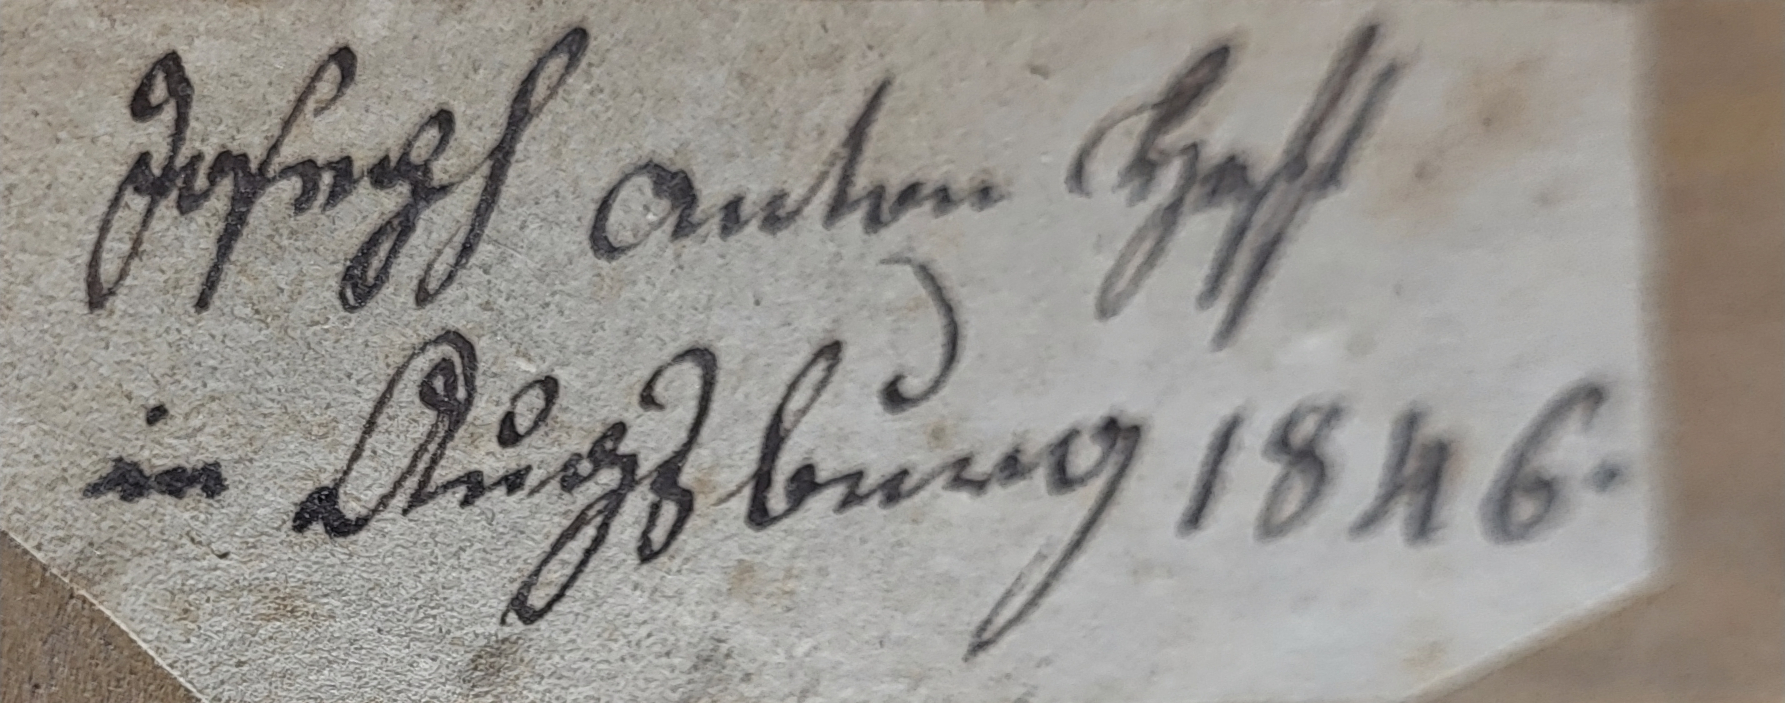 Joseph Anton Haff
in Augsburg 1846.